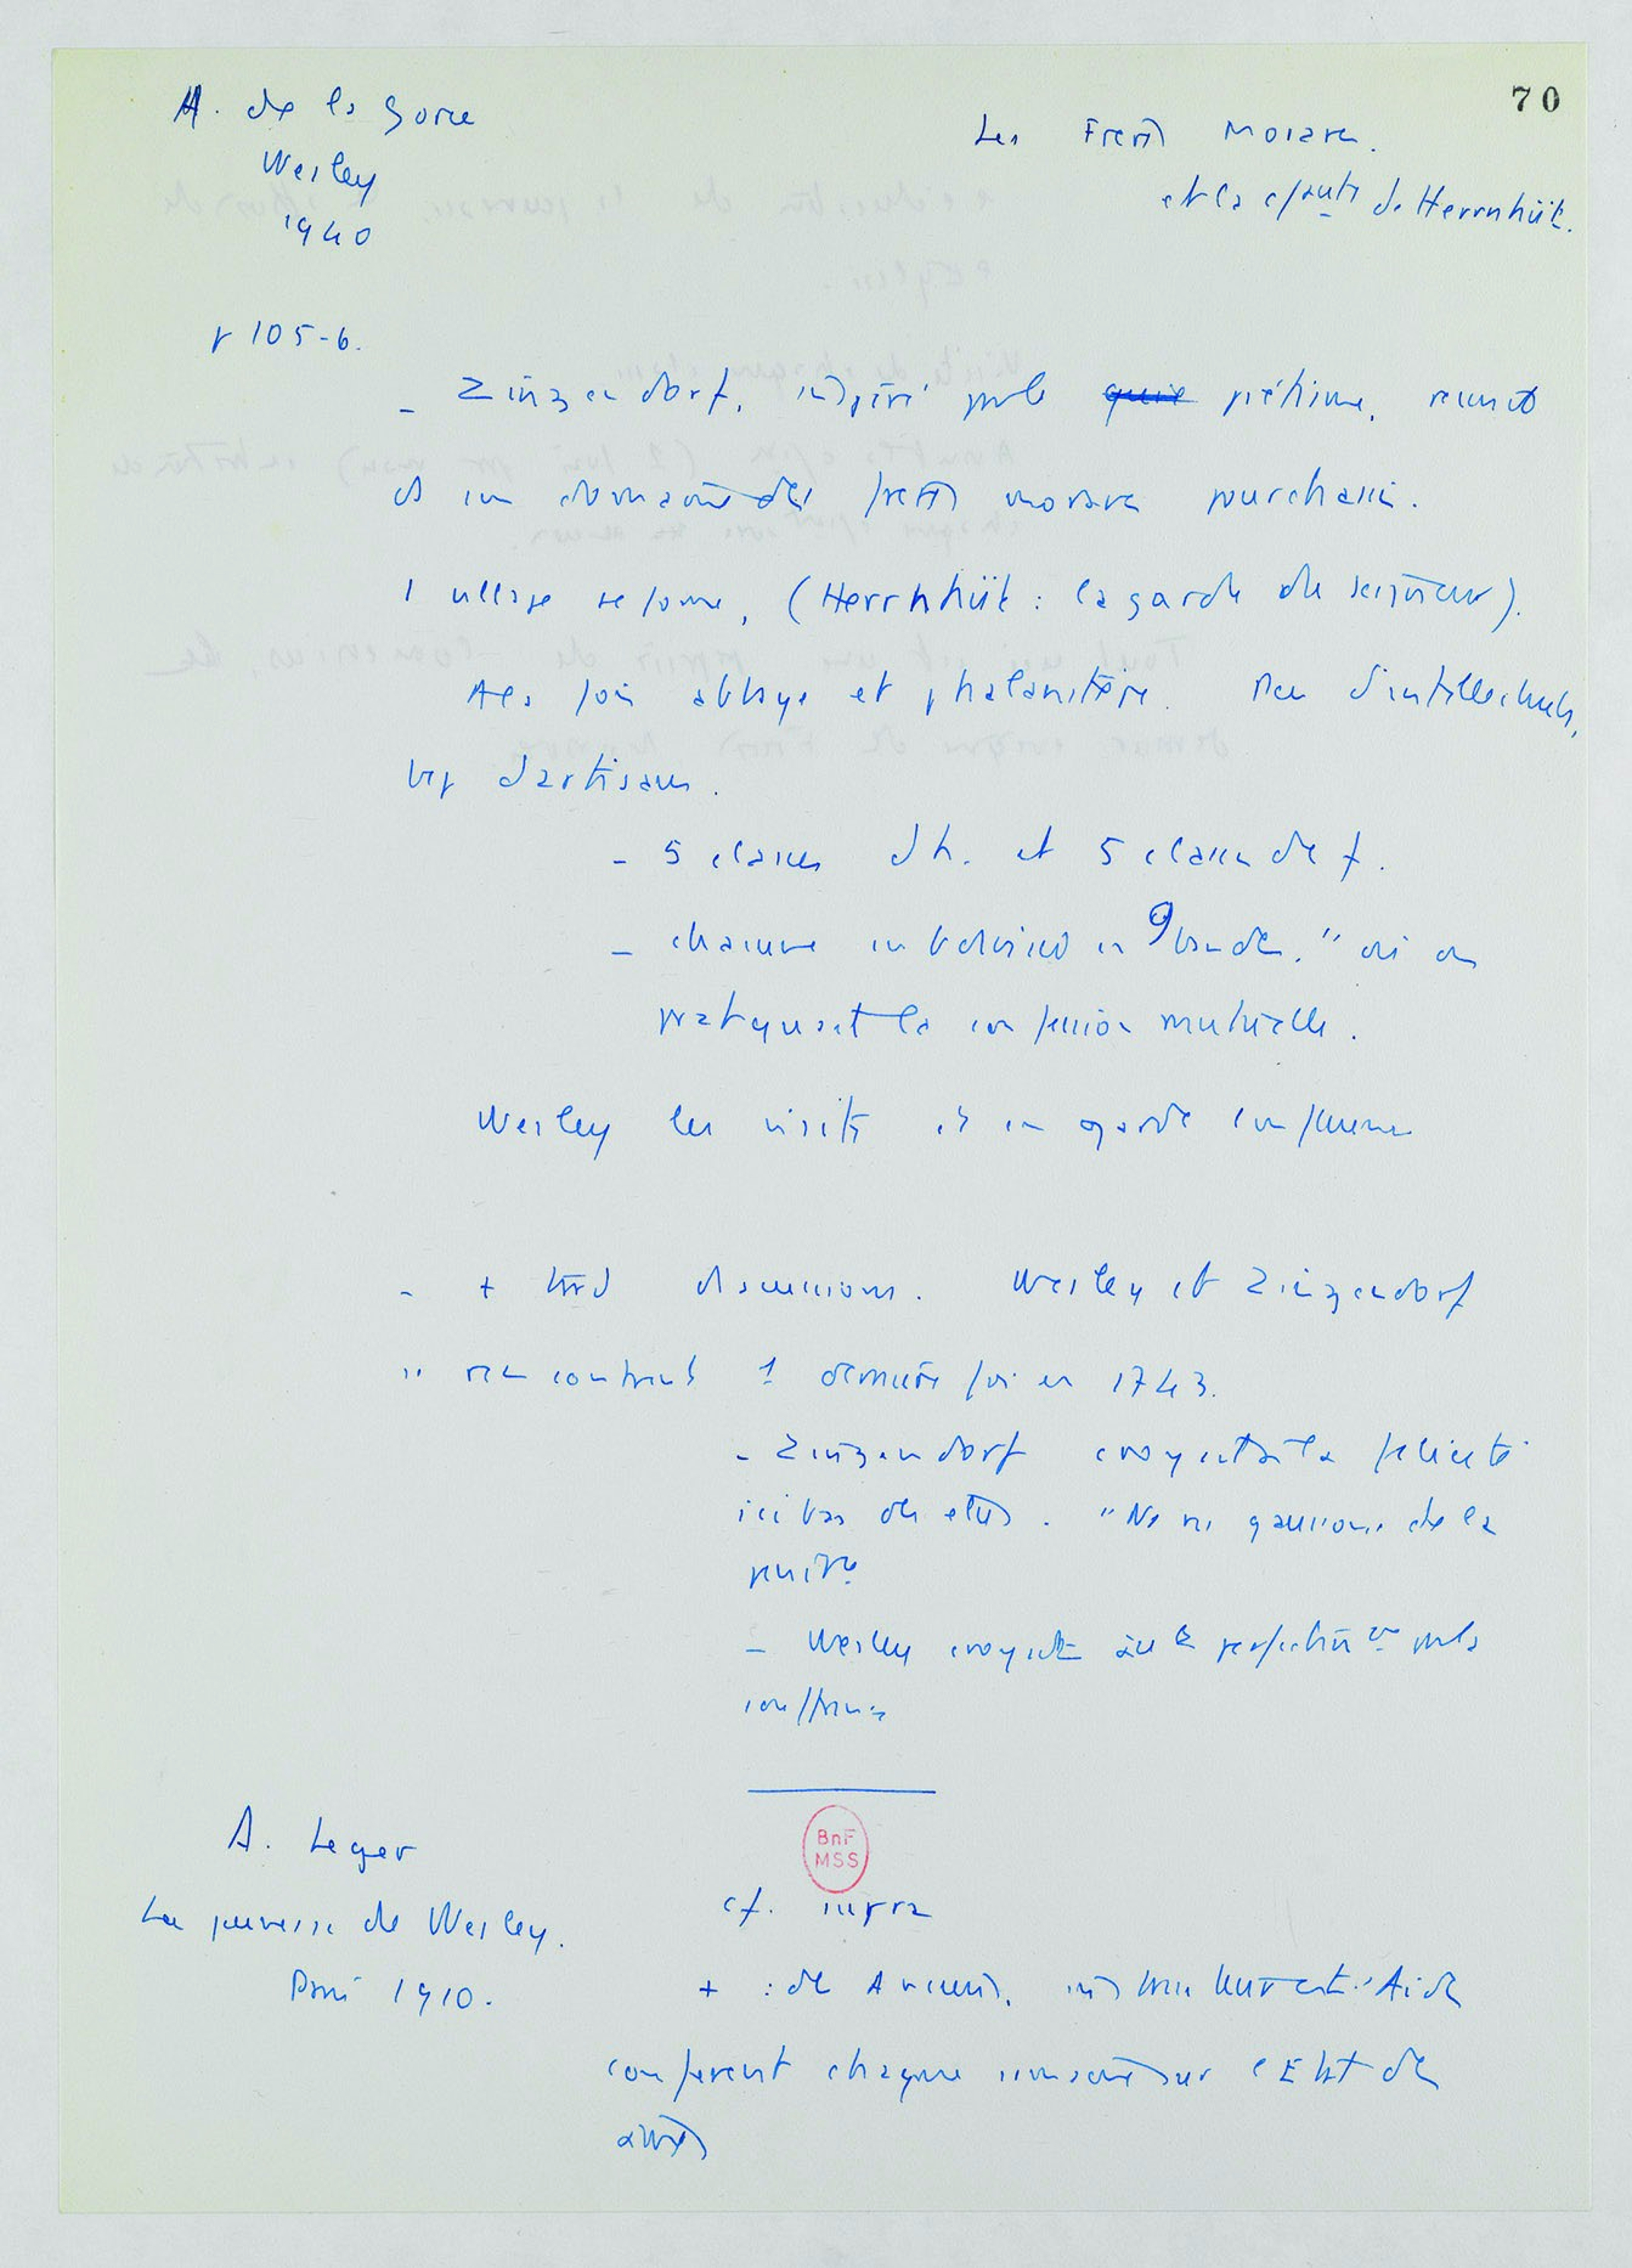 70
A. de la Gorce
Wesley
1940
Les Freres Moraves.
et la cfauté de Herrnhüt.
p 105-6.
- Zinzendorf, inspiré par le piétisme, reunit
ds un domaine des freres moraves pourchassés.
1 village se forme, (Herrnhüt : la garde du seigneur).
A la fois abbaye et phalanstère. Peu d'intellectuels,
bcp d'artisans.
- 5 classes d'h. et 5 classes de f.
- chacune en bandes." où on
pratiquait la confession mutuelle.
Wesley les visite et en garde
- + tard discussions. Wesley et Zinzendorf
se rencontrent 1 dernière fois en 1743.
- Zinzendorf croyait à la félicité
ici bas des elus. "Ns ns gaussons de la
penitce
- Wesley croyait à la perfection par la
souffrance
A. Leger
La jeunesse de Wesley.
Paris 1910.
cf. supra
+ : de Anciens, instructeurs et Aides
conferent chaque semaine sur l'Etat des
ames
BnF
MSS